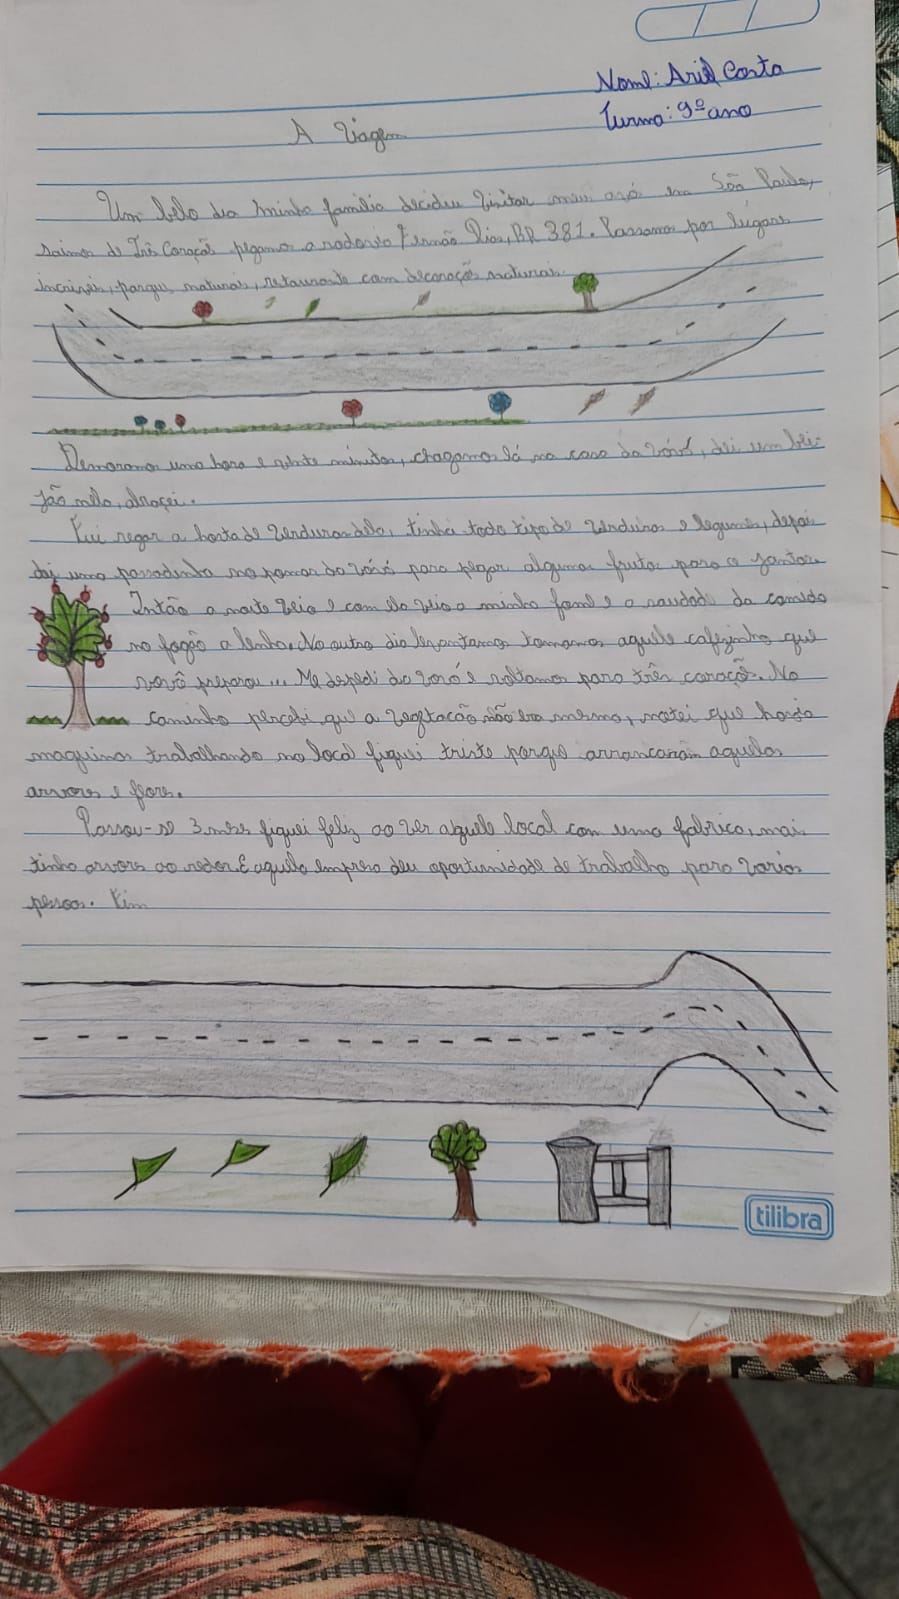 Nome: Ariel Costa
Turma: 9º ano
A Viagem
Um belo dia minha família decidiu visitar meu avó em São Paulo,
saimos de Três Coraçõs pegamos a rodovia Fernão Dias, BR 381. Passamos por lugares
incriveis, parques naturais, retaurante com decorações naturais.
Demoramos uma hora e vinte minutos, chagamos lá na casa da vóvó, dei um bei-
jão nela, abraçei.
Fui regar a horta de verduras dela, tinha todo tipo de verduras e legumes, depois
dei uma passadinha no pomar da vóvó para pegar algumas frutas para o jantar.
Então a noite veio e com ela veio a minha fome e a saudade da comida
no fogão a lenha. No outro dia levantamos tomamos aquele cafezinho que
vovó preparou... Me despedi da vovó e voltamos para três coraçõs. No
caminho percebi que a vegtacão não era mesma, notei que havia
maquinas trabalhando no local fiquei triste porque arrancaram aquelas
arvores e flores.
Passou-se 3 meses fiquei feliz ao ver aquele local com uma fabrica, mais
tinha arvores ao redor. E aquela empresa deu oportunidade de trabalho para varias
pessoas. Fim
tilibra